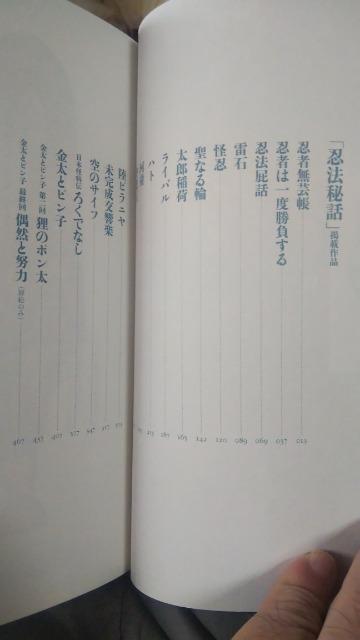 「忍法秘話」掲載作品
忍者無芸帳 012
忍者は一度勝負する 037
忍法屁話 069
雷石 089
怪忍 120
聖なる輪 142
太郎稲荷 163
ライバル
ハト
陸ピラニヤ
未完成交響楽 317
空のサイフ 347
日本怪病伝 ろくでなし 377
金太とピン子 407
金太とピン子 第二回 狸のポン太 437
金太とピン子 最終回 偶然と努力(扉絵のみ) 467